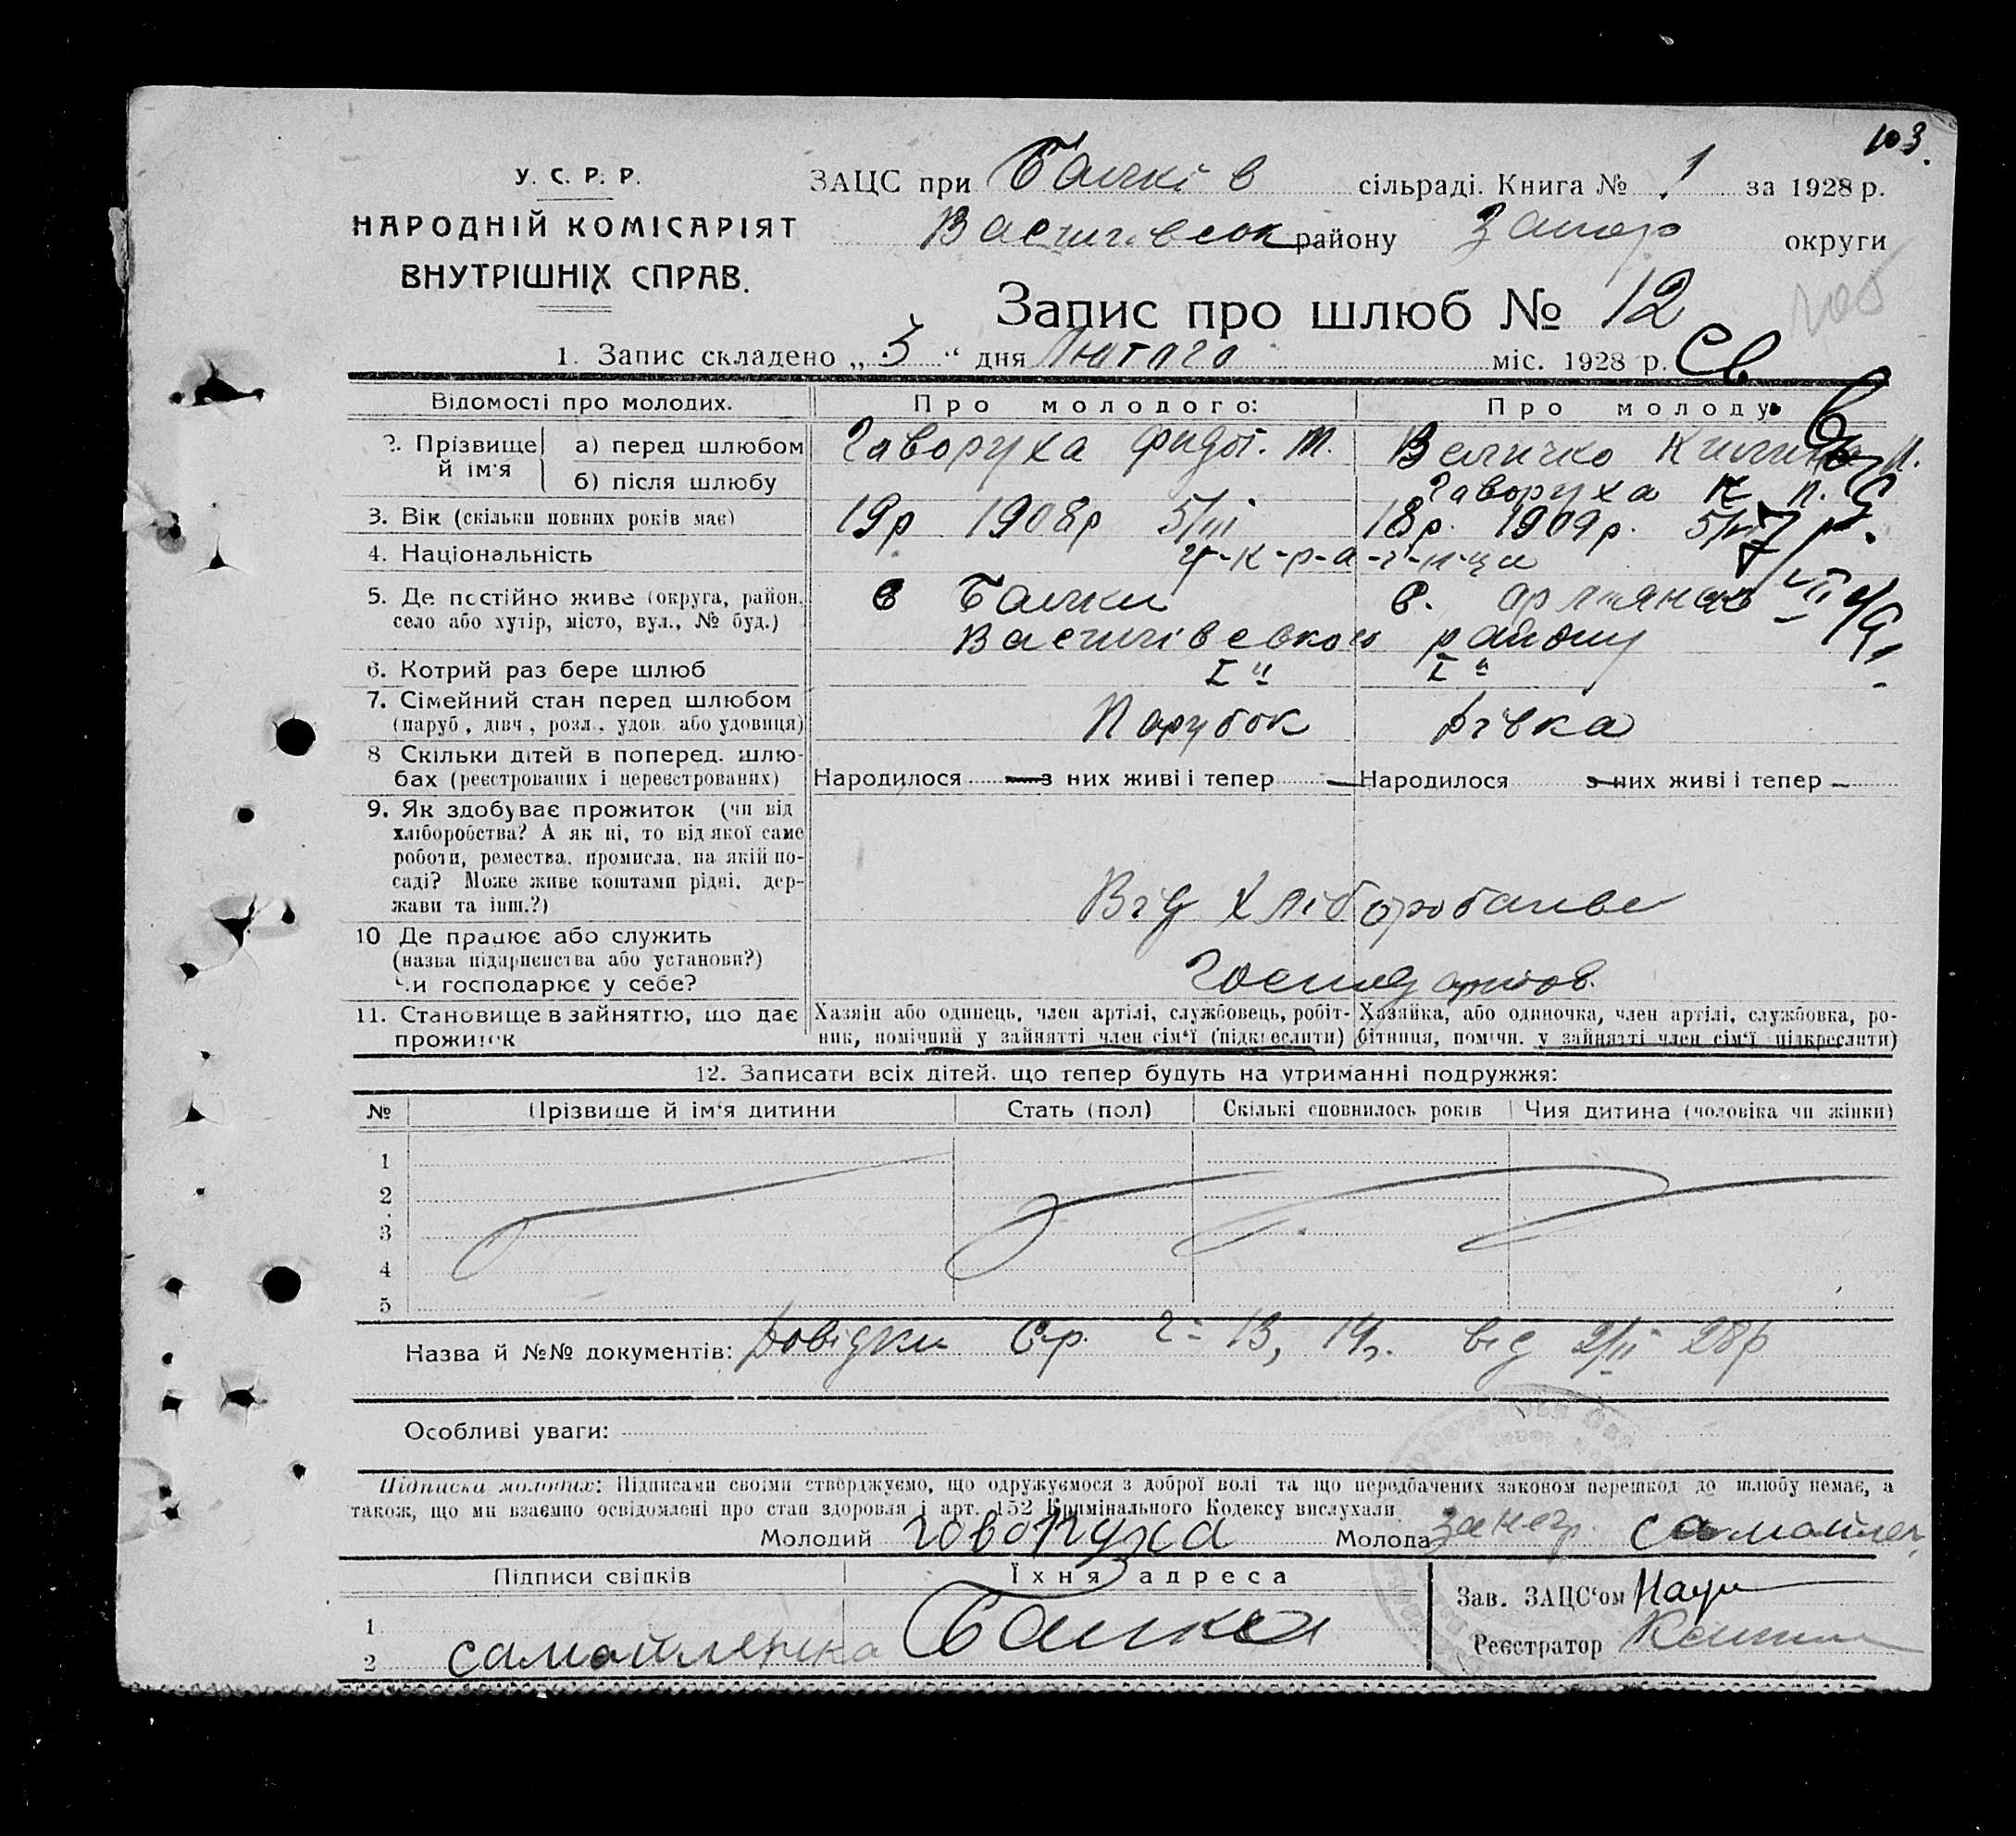 103.
У. С. Р. Р.
НАРОДНІЙ КОМІСАРІЯТ
ВНУТРІШНІХ СПРАВ.
ЗАЦС при Балкі в сільраді. Книга № 1 за 1928 р.
Василівськ району Запор округи
Запис про шлюб № 12
1. Запис складено „ 3 “ дня Лютого міс. 1928 р.
Відомості про молодих. Про молодого: Про молоду
2. Прізвище й ім'я а) перед шлюбом Говоруха Федот. Т. Величко Килина П.
б) після шлюбу Говоруха К П.
3. Вік (скільки повних років має) 19р 1908р 5/III 18р. 1909р.
4. Національність у-к-р-а-ї-н-ца
5. Де постійно живе (округа, район, село або хутір, місто, вул., № буд.) в Балки в.
Василівсвкого району
6. Котрий раз бере шлюб I" I"
7. Сімейний стан перед шлюбом (паруб, дівч, розл., удов. або удовиця) Парубок дівка
8 Скільки дітей в поперед. шлюбах (реєстрованих і нереєстрованих) Народилося — з них живі і тепер — Народилося з них живі і тепер —
9. Як здобуває прожиток (чи від
хліборобства? А як ні, то від якої саме
роботи, ремества, промисла, на якій по-
саді? Може живе коштами рідні, дер-
жави та інш.?) Від хліборобства
10 Де працює або служить
(назва підприємства або установи?)
Чи господарює у себе?
11. Становище в зайняттю, що дає прожиток
Хазяїн або одинець, член артілі, службовець, робіт-
ник, помічний у зайнятті член сім'ї (підкреслити)
Хазяйка, або одиночка, член артілі, службовка, ро-
бітниця, помічн. у зайнятті член сім'ї підкреслити)
12. Записати всіх дітей, що тепер будуть на утриманні подружжя:
№ Прізвище й ім'я дитини Стать (пол) Скількі сповнилось років Чия дитина (чоловіка чи жінки)
1
2
3
4
5
Назва й №№ документів: Довідки С-р. 13, 14, від 2/II 28р
Особливі уваги:
Підписки молодих: Підписами своїми стверджуємо, що одружуємося з доброї волі та що передбачених законом перешкод до шлюбу немає, а
також, що ми взаємно освідомлені про стан здоровля і арт. 152 Кримінального Кодексу вислухали
Молодий Говоруха Молода за негр.
Підписи свідків Їхня адреса
Зав. ЗАЦС'ом
1
2 Самойленко Балки
Реєстратор